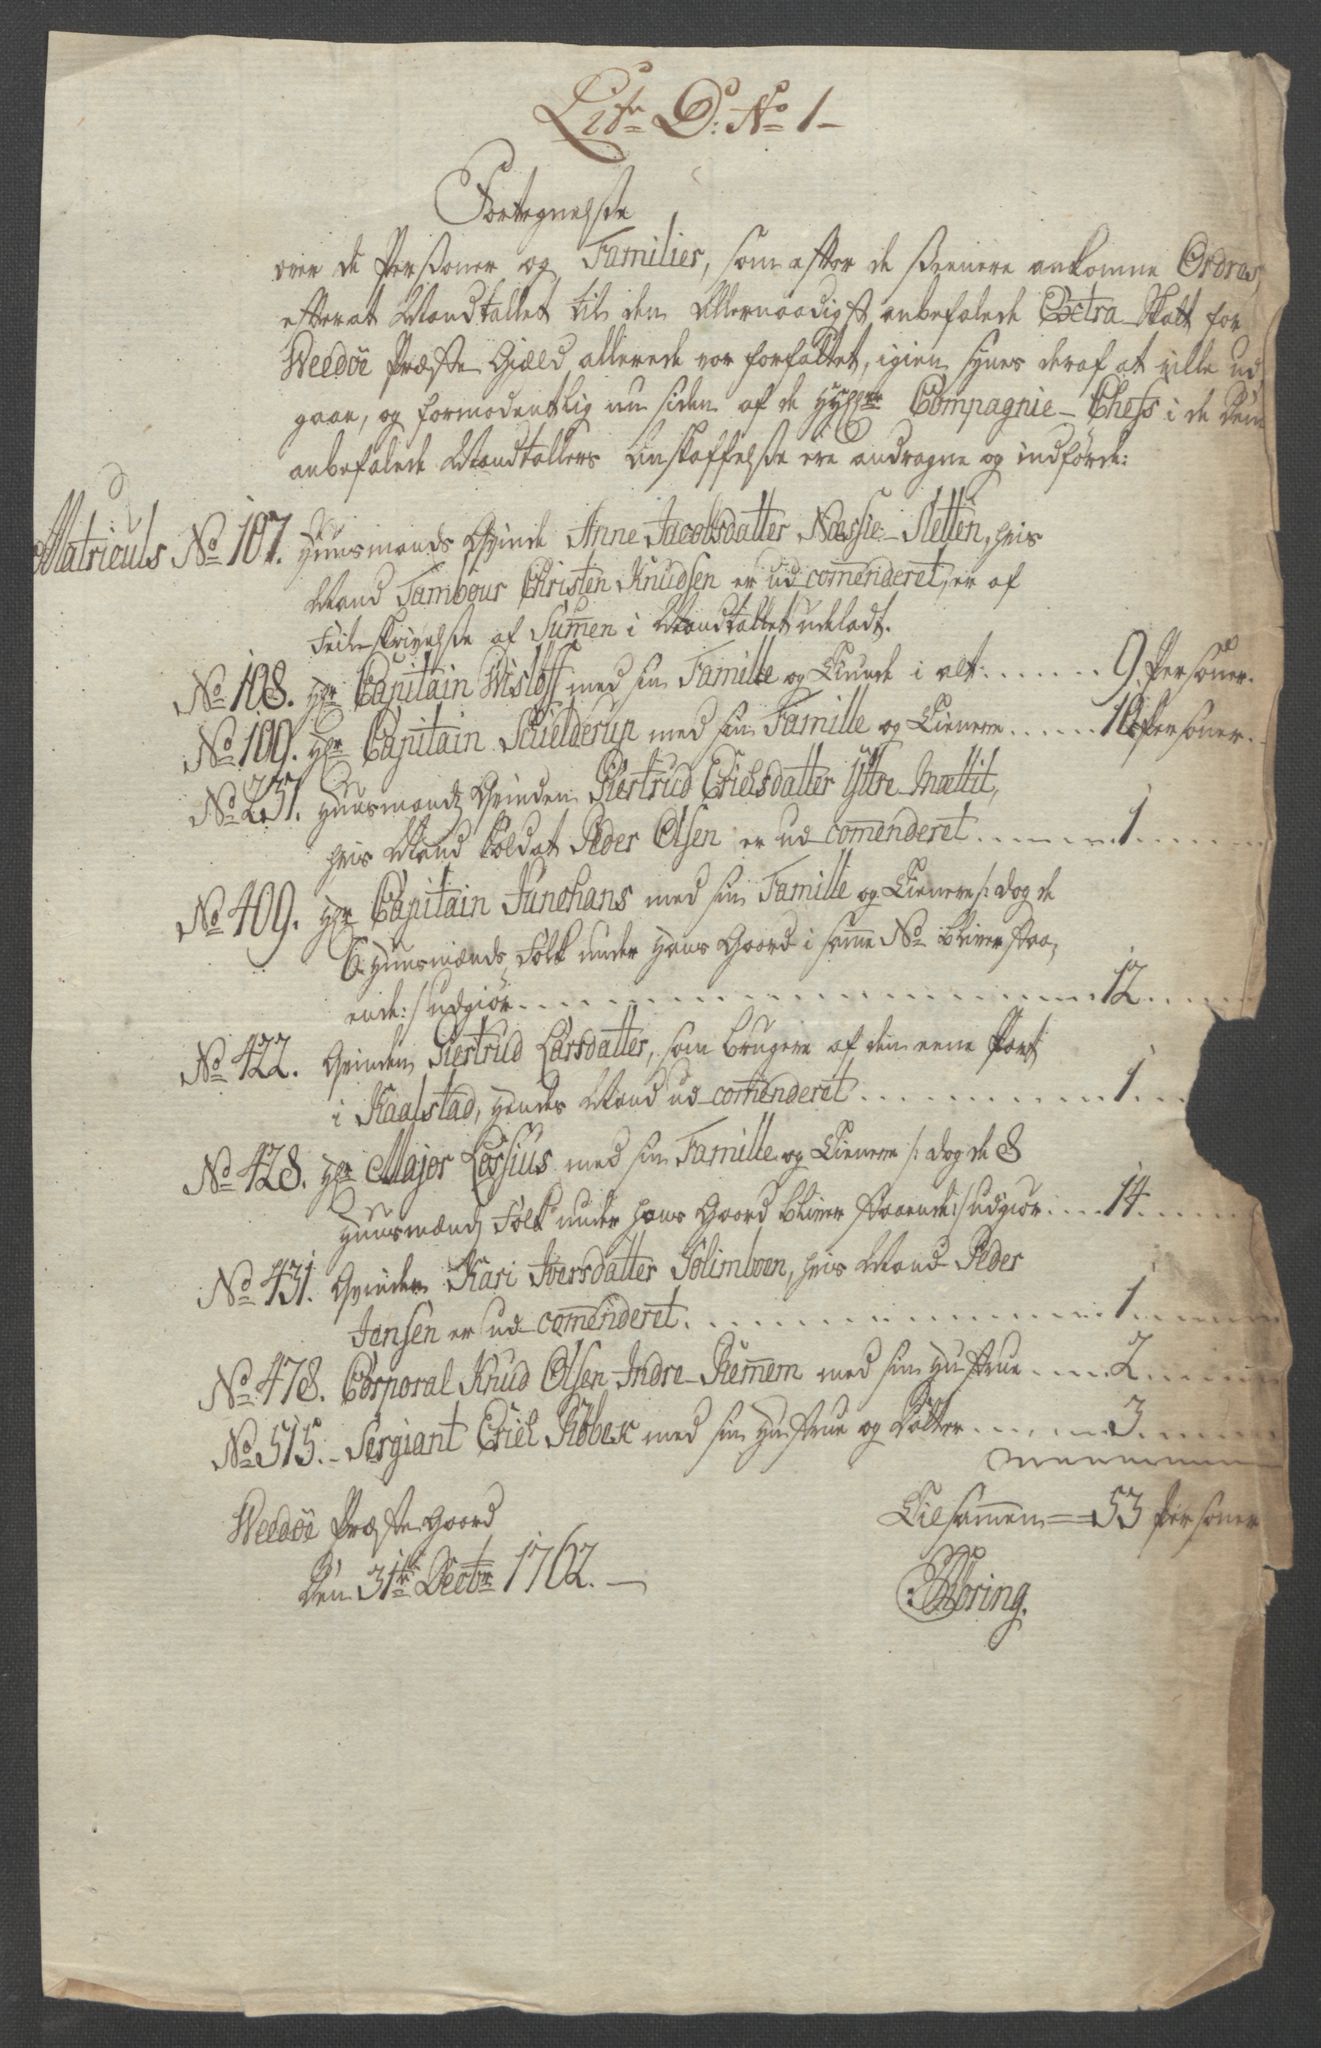 Litr D: No 1
Fortegnelse
over de Personer og Familier, som efter de seenere ankomne Ordres,
efterat Mandtallet til den Allernaadigst anbefalede Extra-Skatt for
Weedöe Præste-Gield allerede var forfattet, igien synes deraf at ville ud
gaae, og formodentlig nu siden af de Hyhrr Compagnie-Chefs i de dem
anbefalede Mandtallers Anskaffelse ere andragne og indförde:
Matriculs No 107. Huusmands Qvinde Anne Jacobsdatter Næssie-Sletten, hvis
Mand Tambour Christen Knudsen er ud comenderet, er af
Feilskrivelse af Sumen i Mandtallet udeladt.
No 108. Hr Capitain Wisloff med sin Famille og Tiunde i alt: ....... 9 Personer.
No 109. Hr Capitain Schielderup med sin Famille og Tienere ...... 10 Personer.
No 231. Huusmands Qvinden Giertrud Erichsdatter Yttre-Mættit,
hvis Mand Soldat Peder Olsen er ud comenderet ........ 1
No 409. Hr Capitain Junghans med sin Famille og Tienere /: dog de
6 Huusmænds Folk under Hans Gaard i samme No bliver staa,
ende: / udgiör ........ 12
No 422. Qvinden Giertrud Larsdatter, som bruger af den eene Part
i Kaalstad, hendes Mand ud comenderet ........ 1
No 428. Hr Major Lossius med sin Famille og Tienere /: dog de 8
Huusmænds Folk under hans Gaard bliver staaende: / udgiör .... 14
No 431. Qvinden Kari Iversdatter Solimboen, hvis Mand Peder
Jensen er ud comenderet ........ 1
No 478. Corporal Knud Olsen Indre-Hiemem med sin Hustrue .... 2
No 515. Sergiant Erich Röbech med sin Hustrue og Datter ...... 3
Weedöe Præste-Gaard
Tilsammen == 53 Personer
Den 31te Decbr 1762.
Röring.